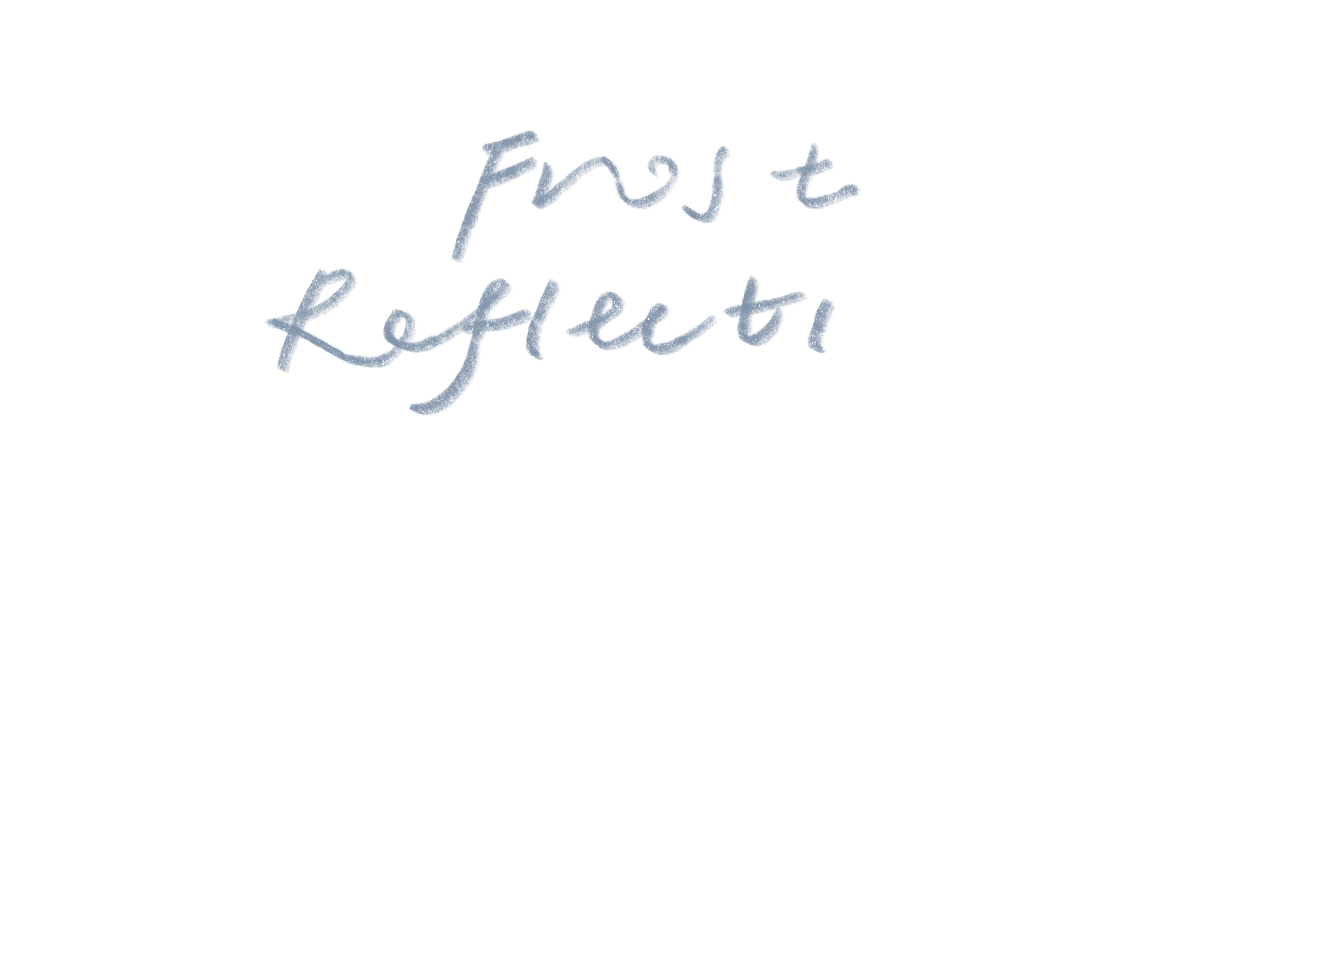 Frost
Reflecti